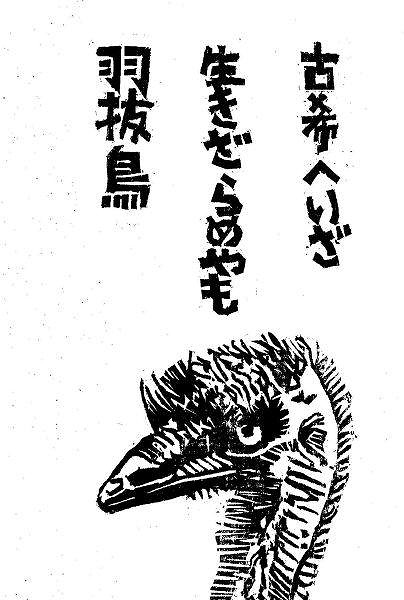 古希へいざ
生きざらめやも
羽抜鳥